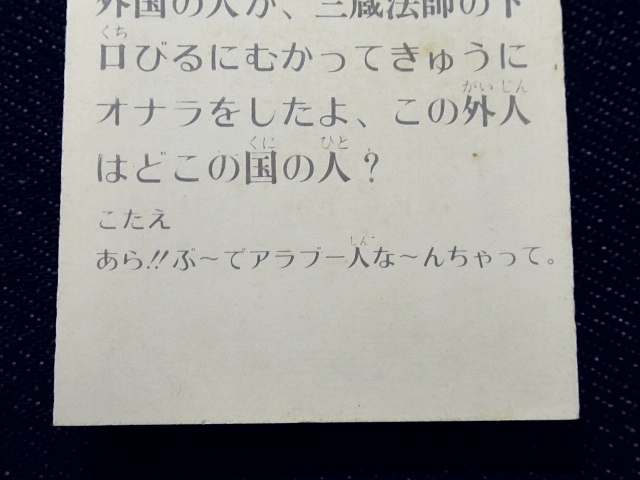 外国の人が、三蔵法師の下
口びるにむかってきゅうに
オナラをしたよ、この外人
はどこの国の人？
こたえ
あら!!ぶ〜でアラブー人な〜んちゃって。